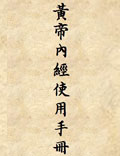 黃帝內經使用手冊